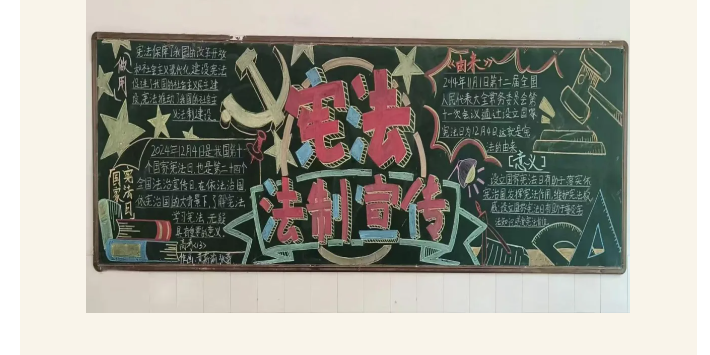 做用
宪法保障了我国的改革开放
和社会主义现代化建设宪法
促进了我国的社会主义民主建
设,宪法推动了我国的社会主
义法制建设。
国家宪法日
2024年12月4日是我国第十
一个国家宪法日,也是第二十四个
全国法治宣传日,在依法治国
依宪治国的大背景下,了解宪法
学习宪法,无疑
具有重要的意义
宪法
法制宣传
《由来》
2014年11月1日第十二届全国
人民代表大会常务委员会第
十一次会议通过设立国家
宪法日为12月4日,这就是宪
法的由来
[意义]
设立国家宪法日有助于落实依
宪治国,发挥宪法作用,维护宪法权
威,设立国家宪法日有助于